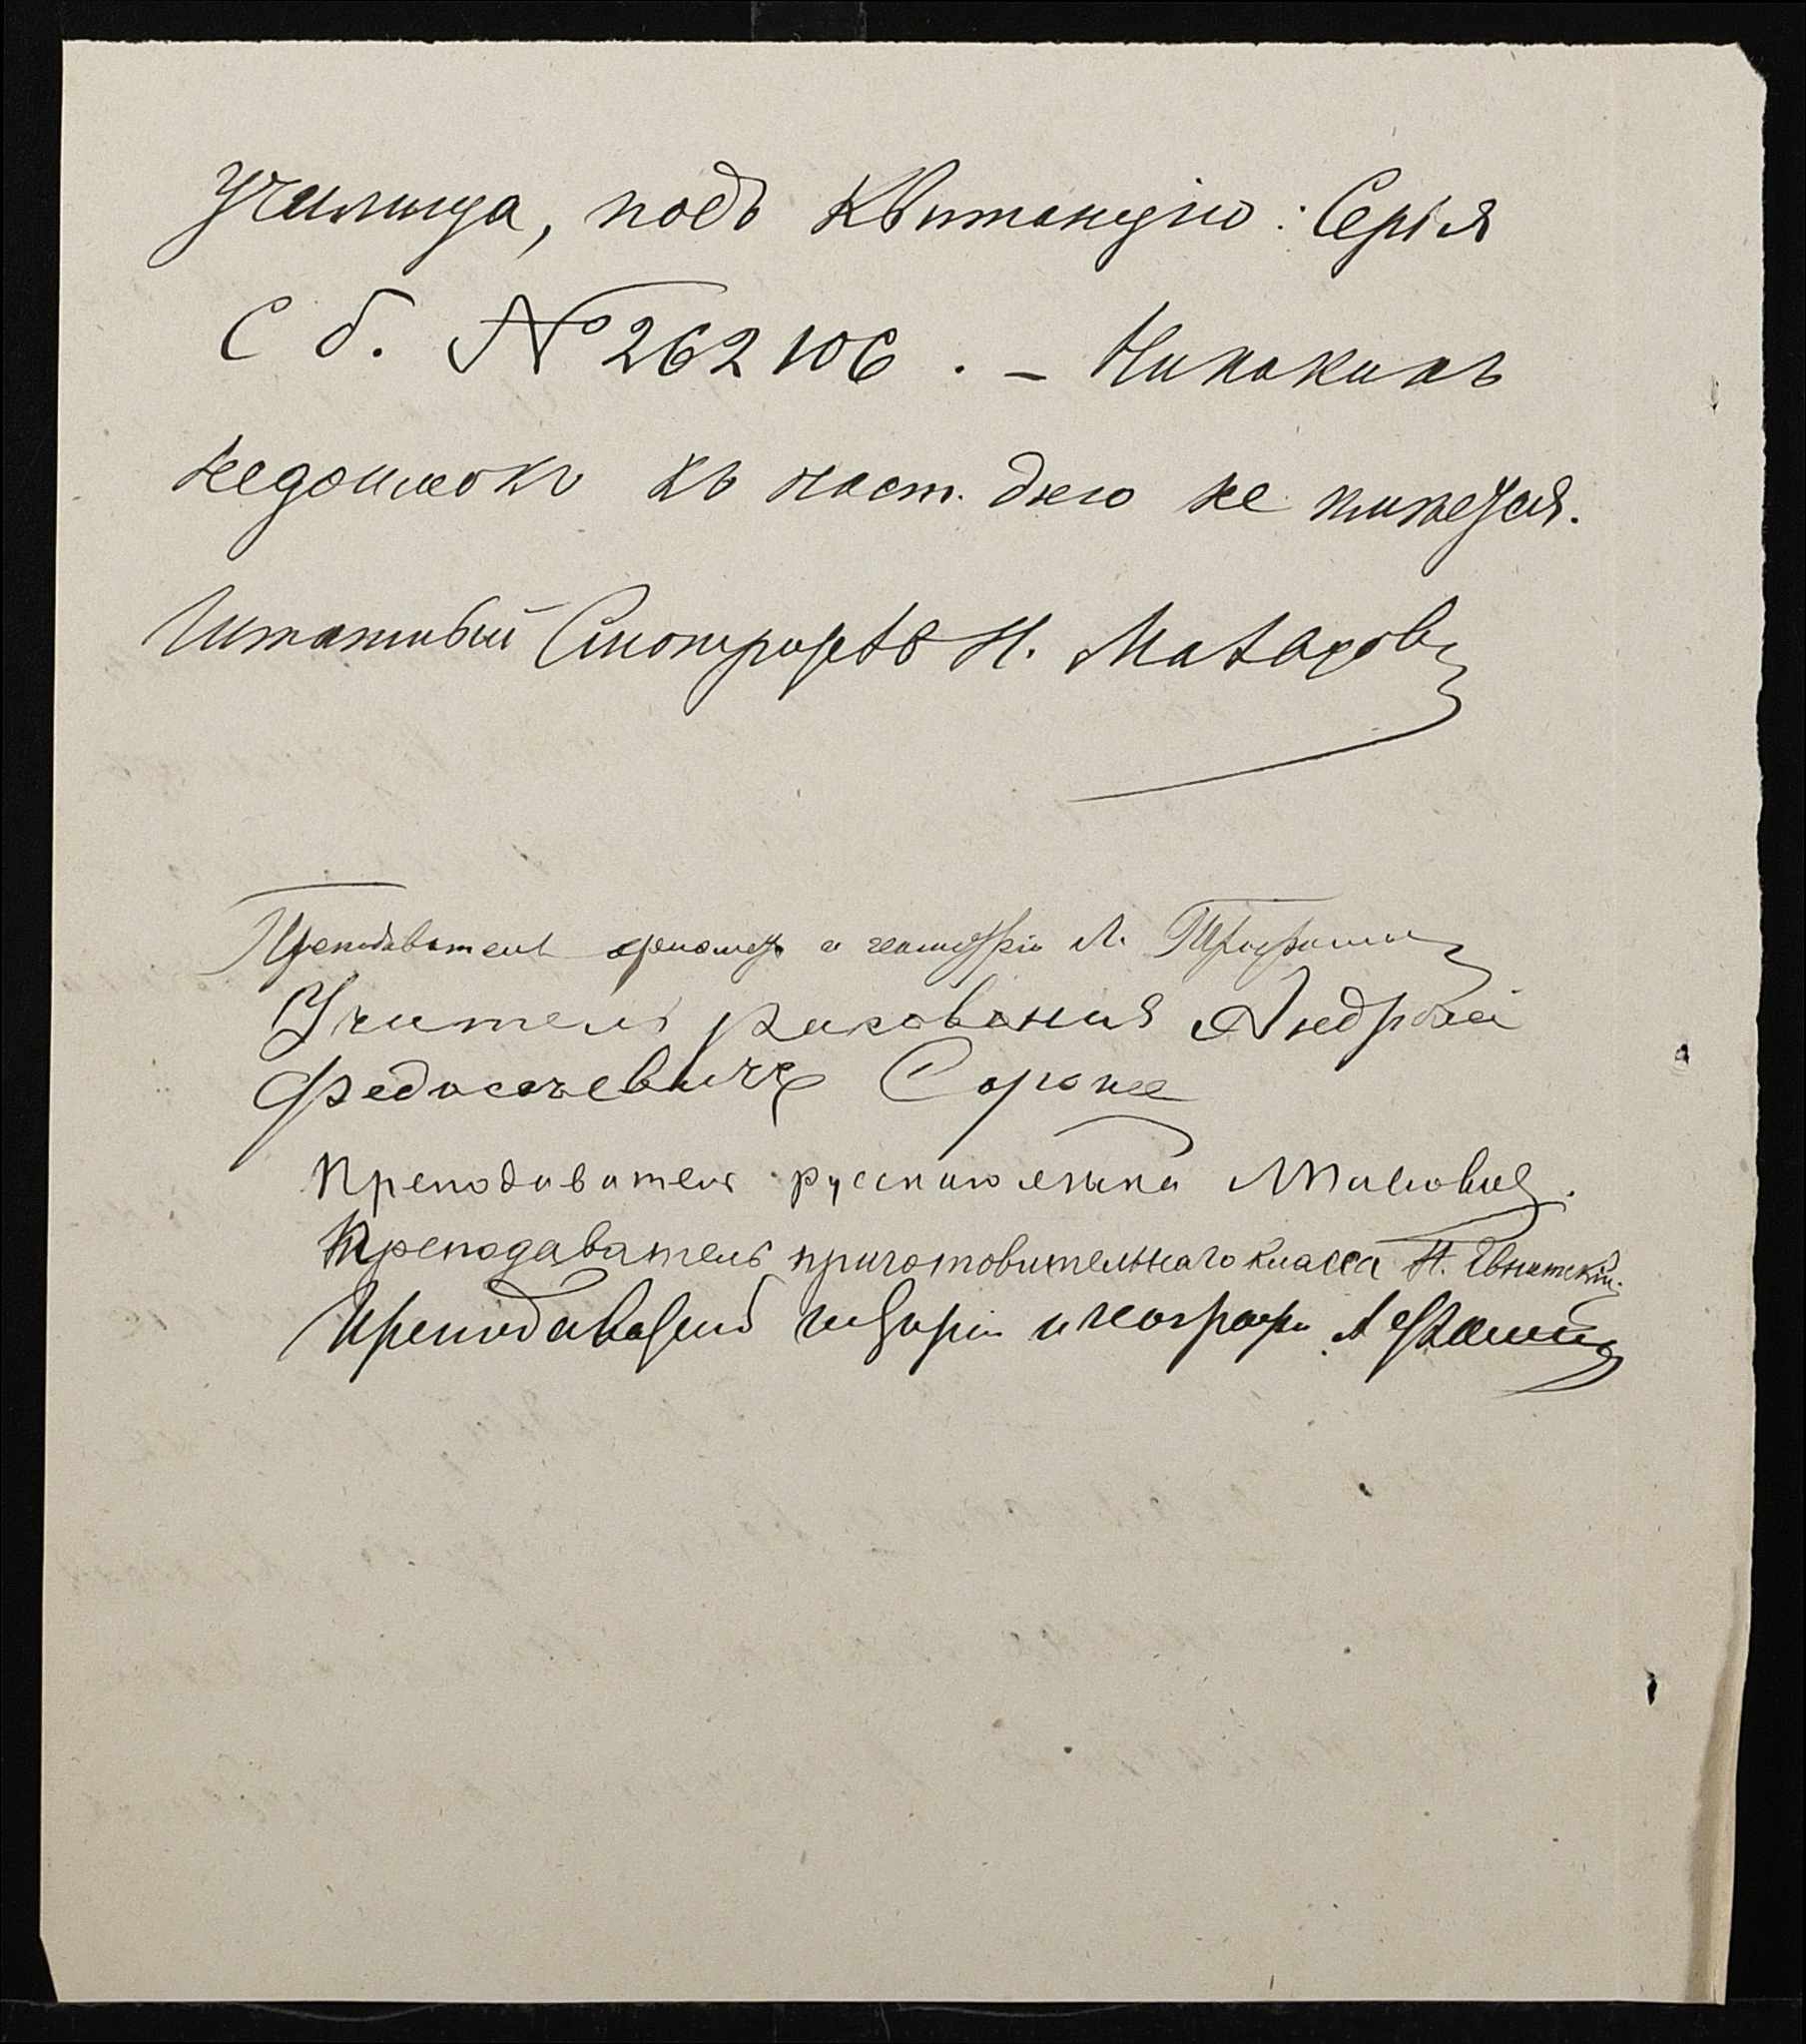 училища, подъ квитанцію: Серія
С б. № 262106. – Никакихъ
недоимокъ къ наст. дню не имѣется.
Штатный Смотритель Н.
Преподаватель и геометріи
Учитель рисованія Андрей
Федосеевичъ Сорока
Преподаватель русскаго языка
Преподаватель приготовительнаго класса Н.
Преподаватель исторіи и географіи